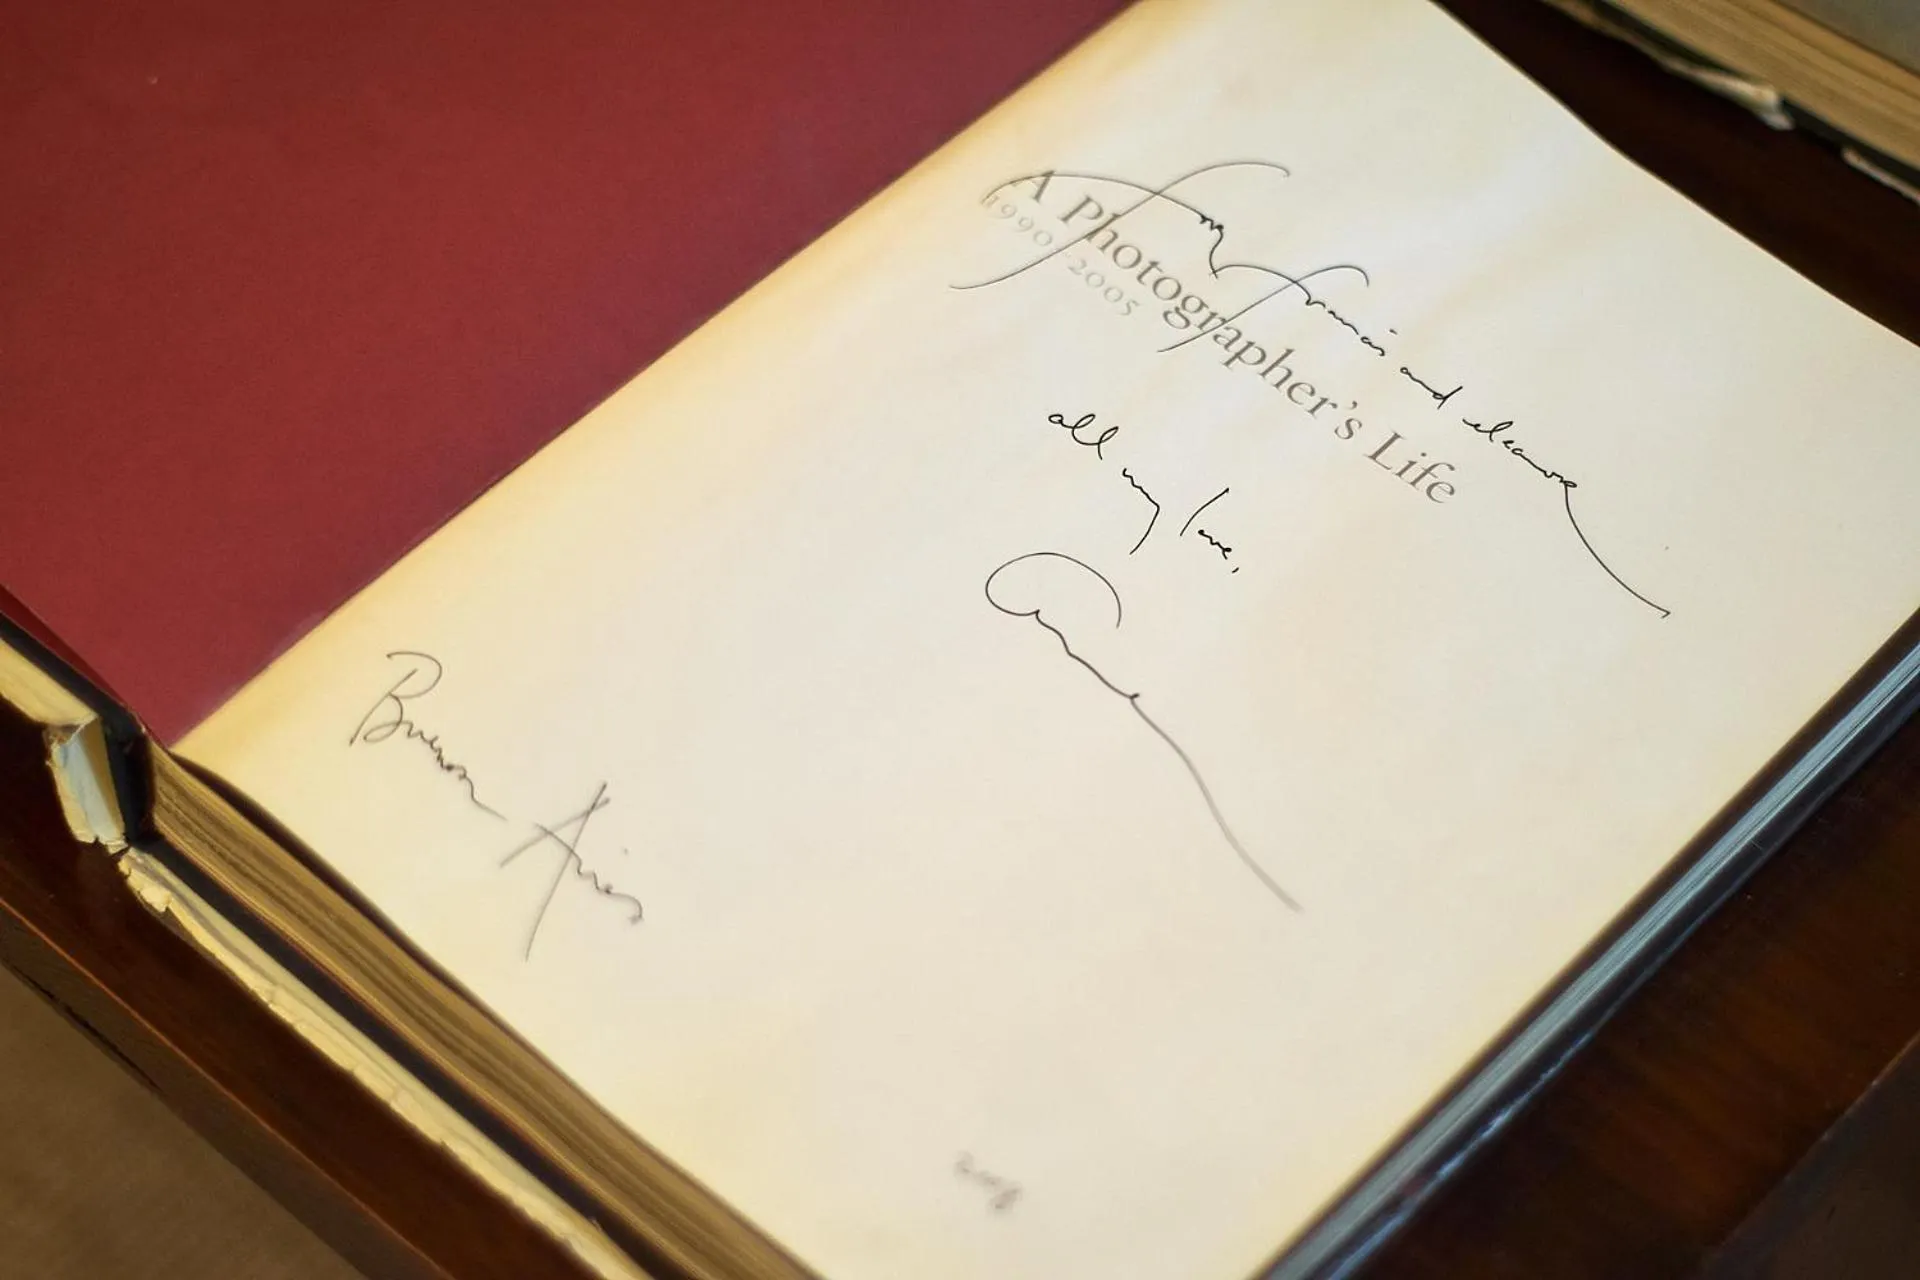 A Photographer's Life
1990-2005
For Francis and eleanore
all my love,
Anne
Buenos Aires
2008